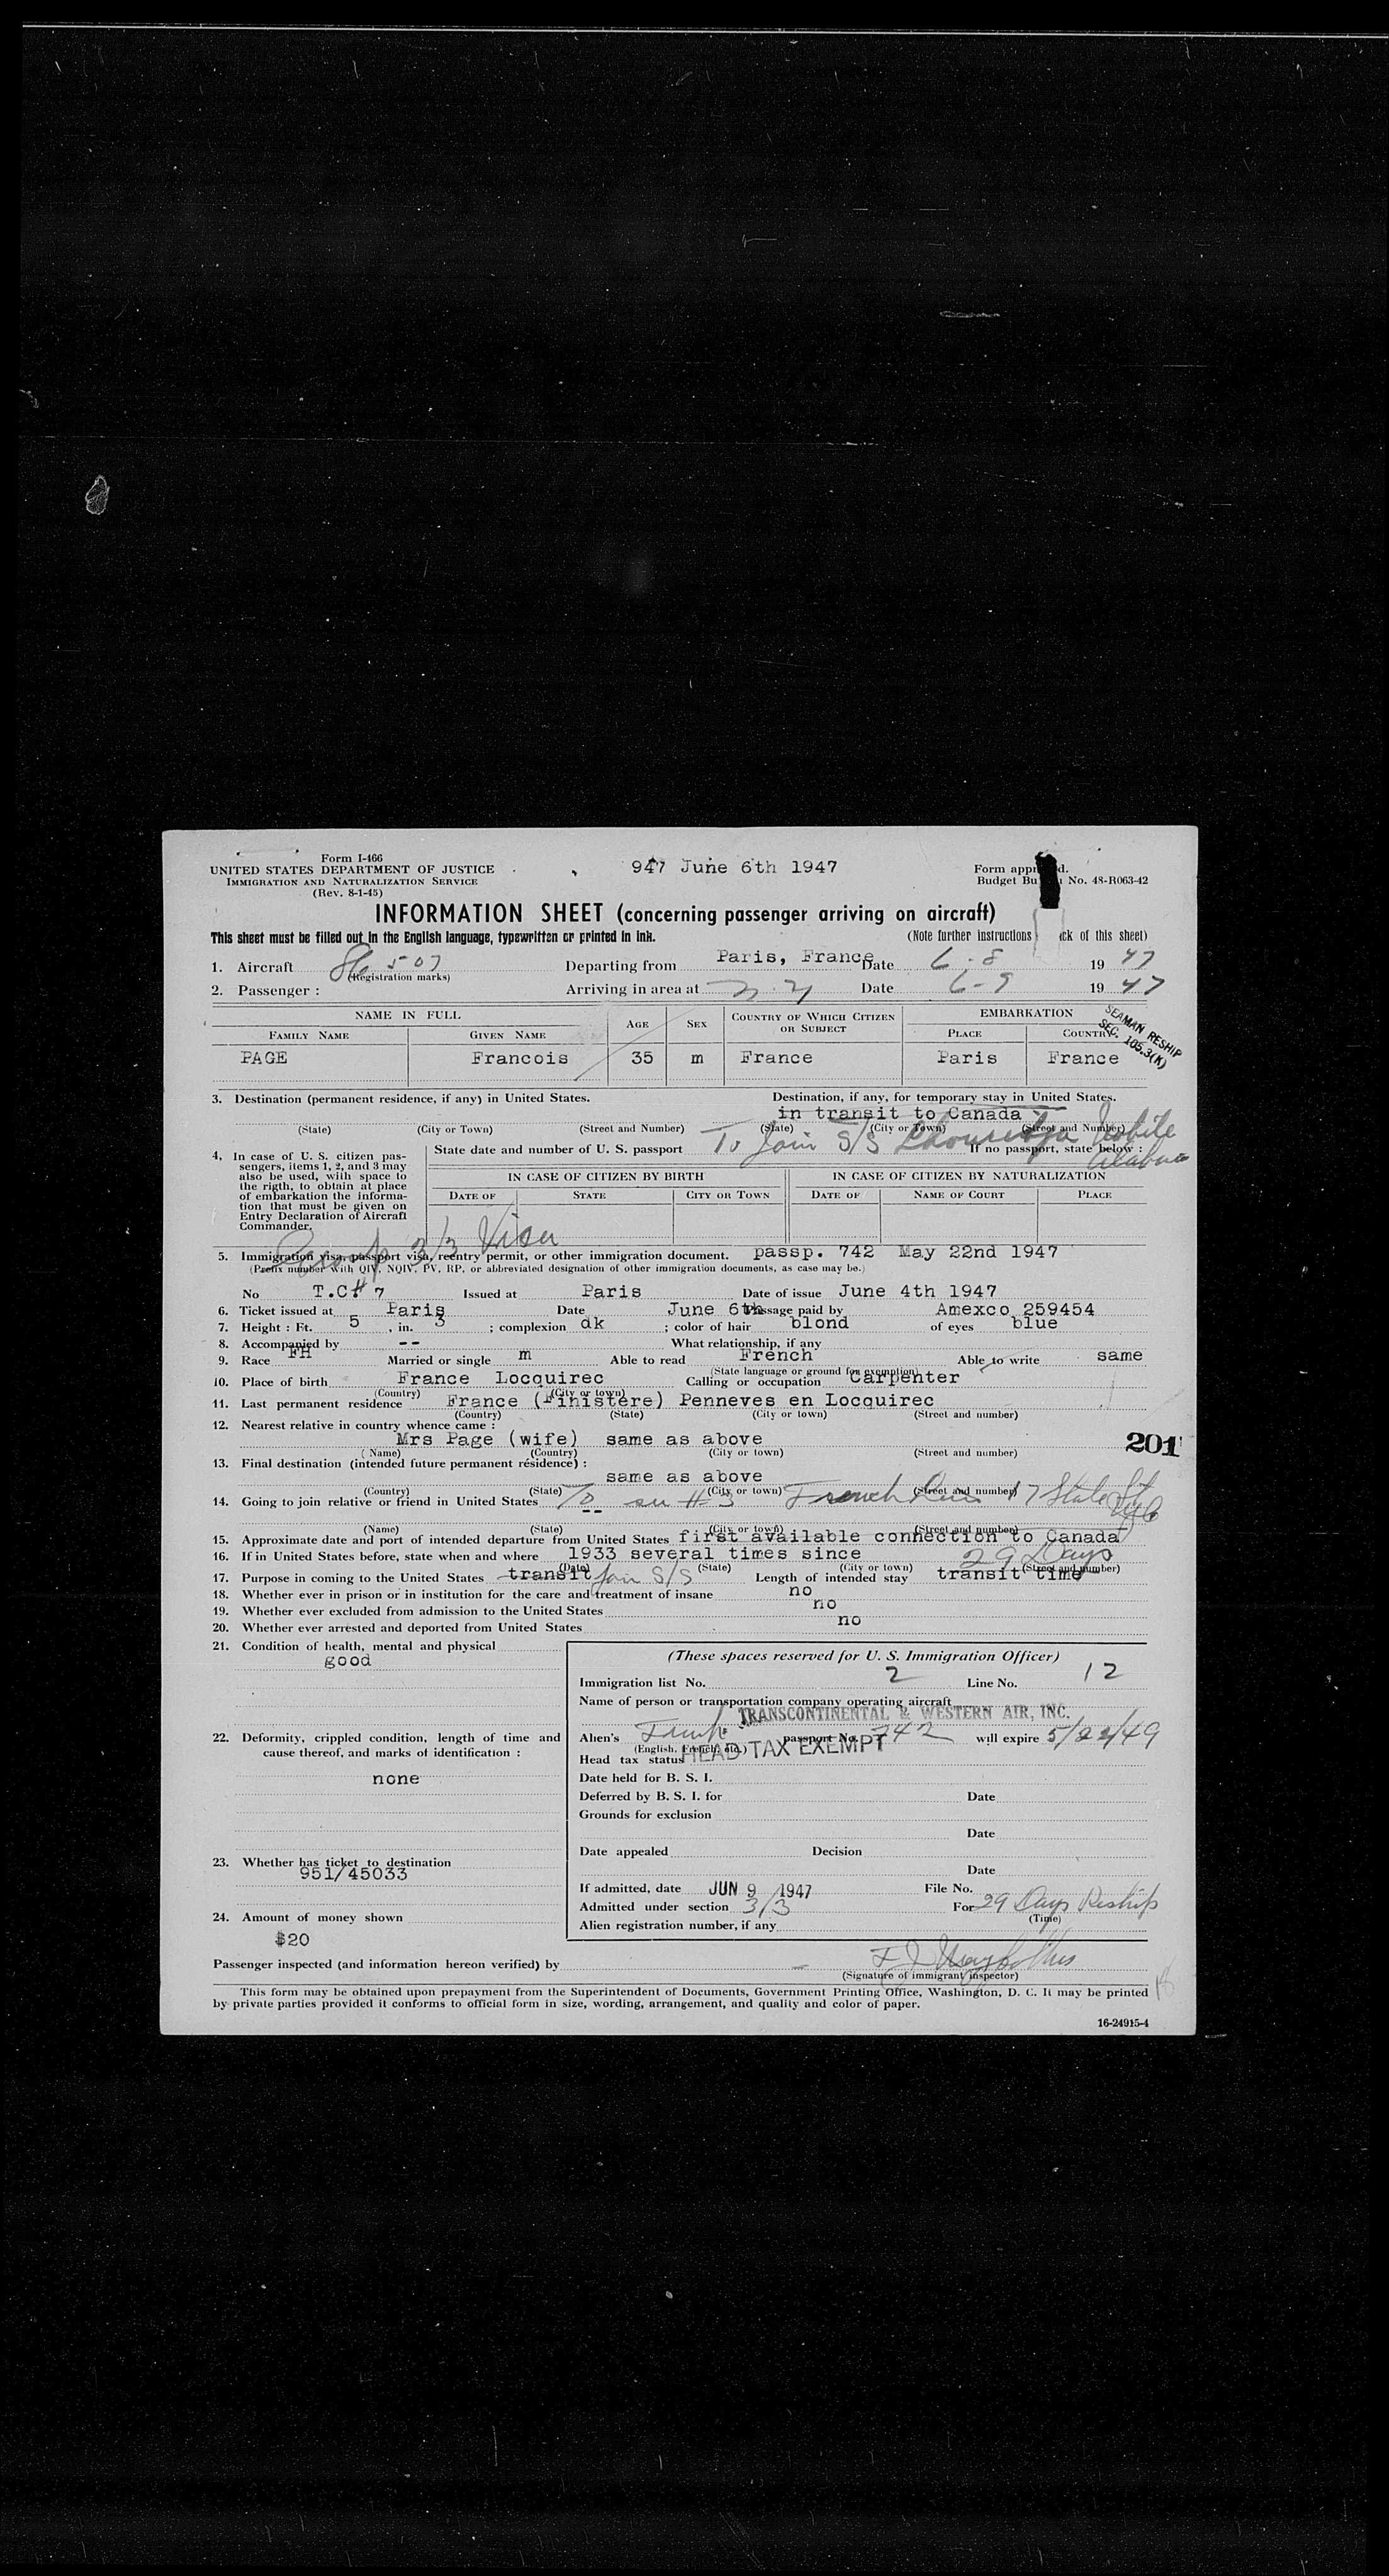 Form I-466
UNITED STATES DEPARTMENT OF JUSTICE
IMMIGRATION AND NATURALIZATION SERVICE
(Rev. 8-1-45)
947 June 6th 1947
Form app d.
Budget Bu No. 48-R063-42
INFORMATION SHEET (concerning passenger arriving on aircraft)
This sheet must be filled out in the English language, typewritten or printed in ink.
(Note further instructions ck of this sheet)
1. Aircraft 86507 Departing from Paris, France Date 6-8 1947
(Registration marks)
2. Passenger : Arriving in area at N.Y Date 6-9 1947
NAME IN FULL AGE SEX COUNTRY OF WHICH CITIZEN OR SUBJECT EMBARKATION
FAMILY NAME GIVEN NAME PLACE COUNTRY
SEAMAN RESHIP
SEC. 105.3(K)
PAGE Francois 35 m France Paris France
3. Destination (permanent residence, if any) in United States. Destination, if any, for temporary stay in United States.
in transit to Canada
(State) (City or Town) (Street and Number) (State) (City or Town) (Street and Number)
To Join S/S Mobile
Alabama
4. In case of U. S. citizen pas-
sengers, items 1, 2, and 3 may
also be used, with space to
the rigth, to obtain at place
of embarkation the informa-
tion that must be given on
Entry Declaration of Aircraft
Commander.
State date and number of U. S. passport If no passport, state below :
IN CASE OF CITIZEN BY BIRTH IN CASE OF CITIZEN BY NATURALIZATION
DATE OF STATE CITY OR TOWN DATE OF NAME OF COURT PLACE
3/3 Visa
5. Immigration visa, passport visa, reentry permit, or other immigration document. passp. 742 May 22nd 1947
(Prefix number with QIV, NQIV, PV, RP, or abbreviated designation of other immigration documents, as case may be.)
No T.C# 7 Issued at Paris Date of issue June 4th 1947
6. Ticket issued at Paris Date June 6th Passage paid by Amexco 259454
7. Height : Ft. 5 , in. 3 ; complexion dk ; color of hair blond of eyes blue
8. Accompanied by -- What relationship, if any
9. Race FH Married or single m Able to read French Able to write same
(State language or ground for exemption)
10. Place of birth France Locquirec Calling or occupation carpenter
(Country) (City or town)
11. Last permanent residence France (Finistere) Penneves en Locquirec
(Country) (State) (City or town) (Street and number)
12. Nearest relative in country whence came :
Mrs Page (wife) same as above
(Name) (Country) (City or town) (Street and number)
201
13. Final destination (intended future permanent résidence) :
same as above
(Country) (State) (City or town) (Street and number)
14. Going to join relative or friend in United States -- To see #3 French Line 17 State St
(Name) (State) (City or town) (Street and number)
15. Approximate date and port of intended departure from United States first available connection to Canada
16. If in United States before, state when and where 1933 several times since
(Date) (State) (City or town) (Street and number)
29 Days
17. Purpose in coming to the United States transit Join S/S Length of intended stay transit time
18. Whether ever in prison or in institution for the care and treatment of insane no
19. Whether ever excluded from admission to the United States no
20. Whether ever arrested and deported from United States no
21. Condition of health, mental and physical
good
22. Deformity, crippled condition, length of time and
cause thereof, and marks of identification :
none
23. Whether has ticket to destination
951/45033
24. Amount of money shown
$20
(These spaces reserved for U. S. Immigration Officer)
Immigration list No. 2 Line No. 12
Name of person or transportation company operating aircraft
TRANSCONTINENTAL & WESTERN AIR, INC.
Alien's French passport No. 742 will expire 5/22/49
(English, French, etc.)
Head tax status HEAD TAX EXEMPT
Date held for B. S. I.
Deferred by B. S. I. for Date
Grounds for exclusion
Date
Date appealed Decision
Date
If admitted, date JUN 9 1947 File No.
Admitted under section 3/3 For 29 Days Reship
(Time)
Alien registration number, if any
Passenger inspected (and information hereon verified) by
(Signature of immigrant inspector)
This form may be obtained upon prepayment from the Superintendent of Documents, Government Printing Office, Washington, D. C. It may be printed
by private parties provided it conforms to official form in size, wording, arrangement, and quality and color of paper.
16-24915-4